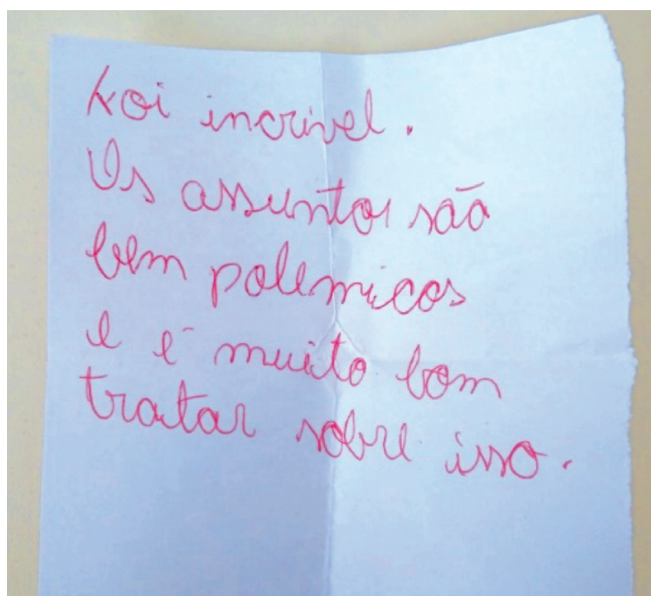 Foi incrivel.
Os assuntos são
bem polemicos
e é muito bom
tratar sobre isso.